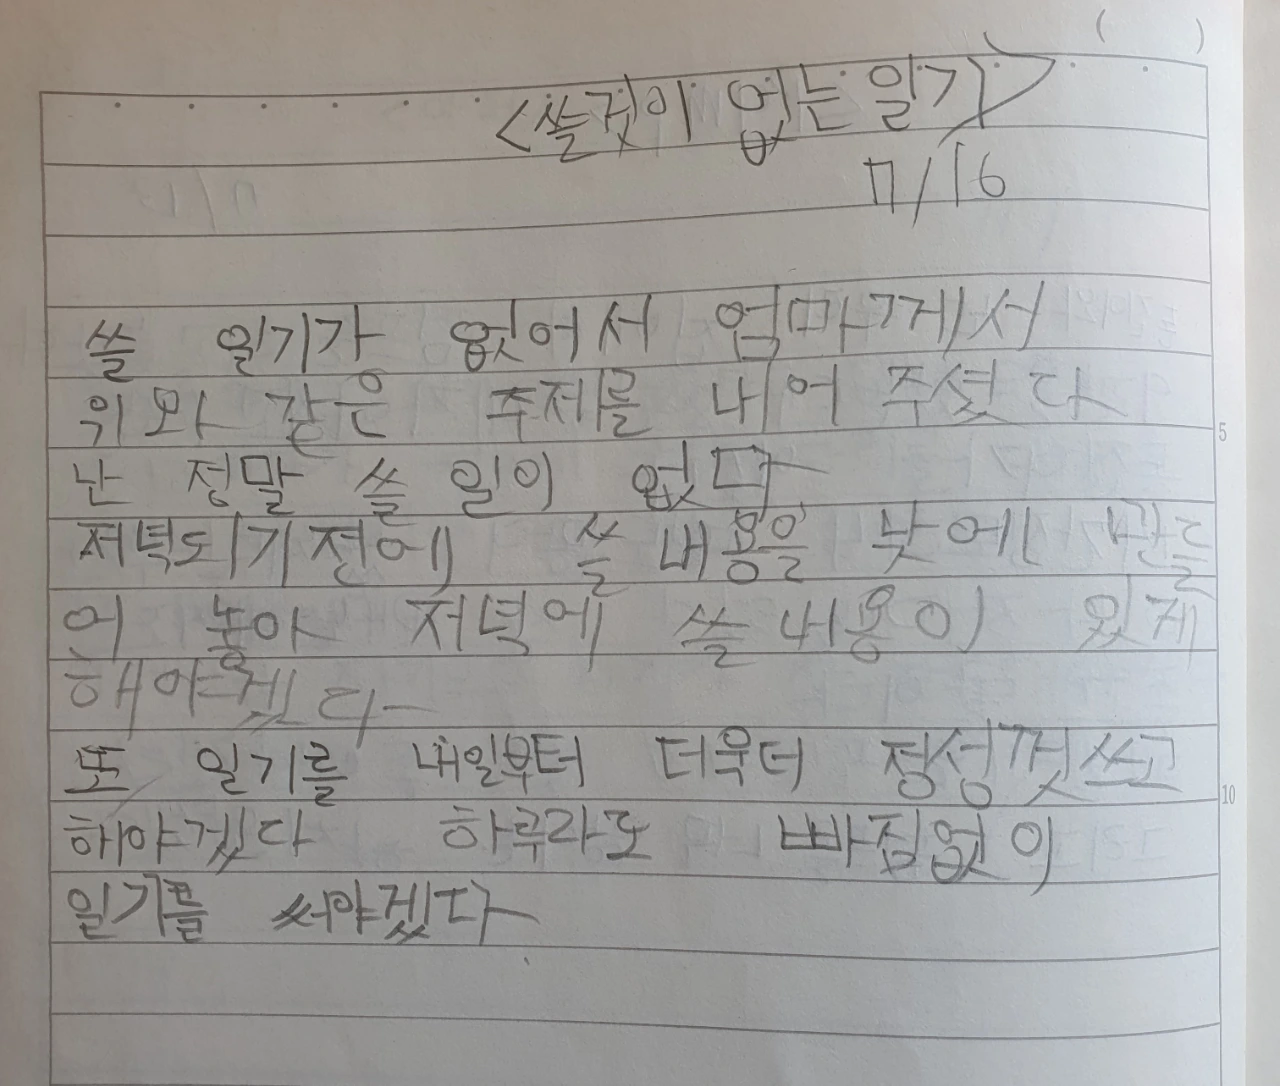 <쓸것이 없는 일기>
7/16
쓸 일기가 없어서 엄마께서
위와 같은 주제를 내어 주셨다
난 정말 쓸 일이 없다
저녁되기 전에 쓸 내용을 낮에 만들
어 놓아 저녁에 쓸 내용이 있게
해야겠다
또 일기를 내일부터 더욱더 정성껏쓰고
해야겠다 하루라도 빠짐없이
일기를 써야겠다
5
10